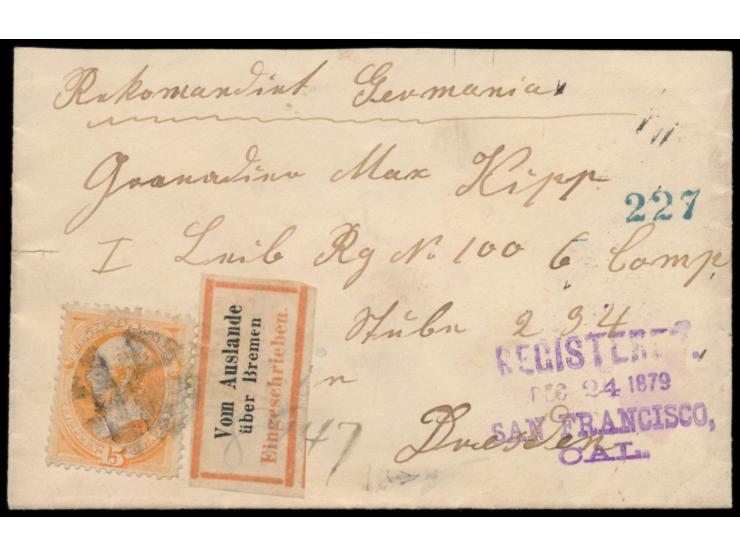 Rekomandirt Germania
Grenadier Max Hipp
227
I Leib Rg No 100 6 Comp
Stube 234
in
Dresden
Vom Auslande
über Bremen
Eingeschrieben.
REGISTERED.
DEC 24 1879
SAN FRANCISCO,
CAL.
47
15